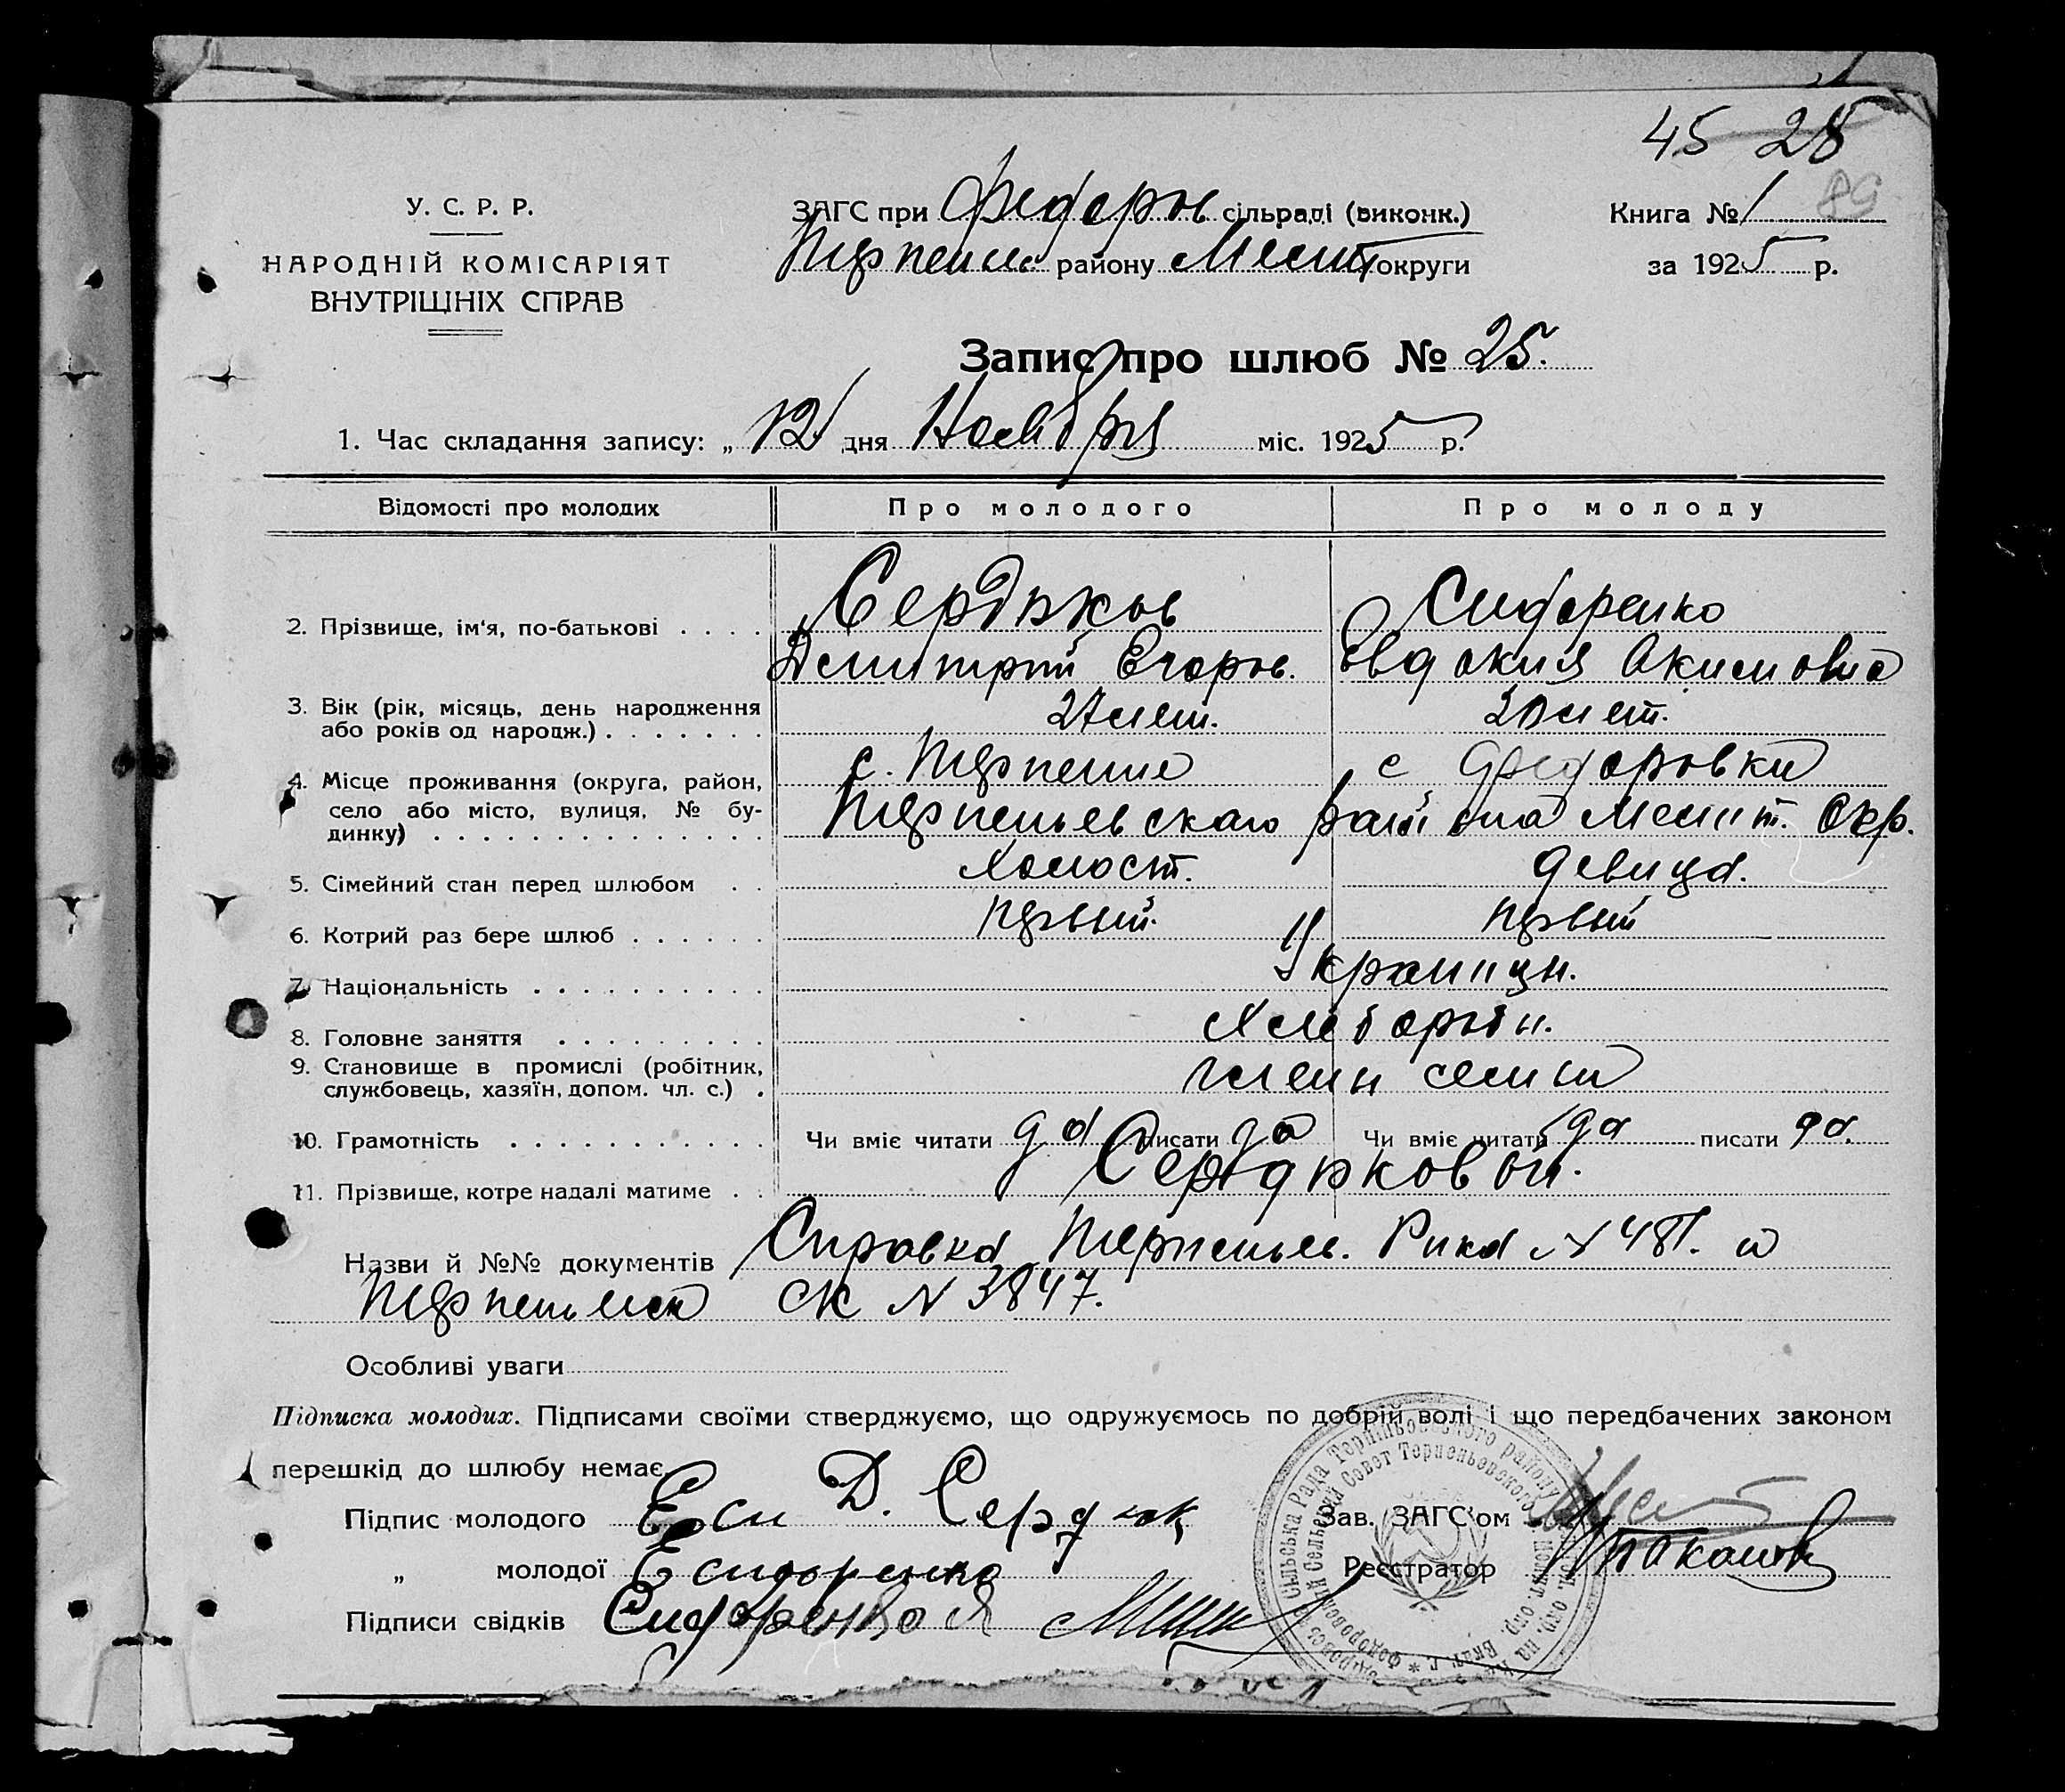 45 28
89
У. С. Р. Р.
НАРОДНІЙ КОМІСАРІЯТ
ВНУТРІШНІХ СПРАВ
ЗАГС при Федоров сільраді (виконк.)
Терпенье району Мелит округи
Книга № 1
за 1925 р.
Запис про шлюб № 25.
1. Час складання запису: „ 12 дня Ноября міс. 1925 р.
Відомості про молодих Про молодого Про молоду
2. Прізвище, ім'я, по-батькові . . . . Сердюков Сидоренко
Дмитрий Егоров. Евдокия Акимовна
3. Вік (рік, місяць, день народження
або років од народж.) . . . . . . . 27 лет. 20 лет.
4. Місце проживання (округа, район,
село або місто, вулиця, № бу-
динку) . . . . . . . . . . . . . .
с. Терпение с Федоровки
Терпеньевскаго района Мелит. Окр.
5. Сімейний стан перед шлюбом . . Холост. девица.
6. Котрий раз бере шлюб . . . . . . первый. первый
7. Національність . . . . . . . . . . Украинцы.
8. Головне заняття . . . . . . . . . Хлебороб.
9. Становище в промислі (робітник,
службовець, хазяїн, допом. чл. с.) . член семьи
10. Грамотність . . . . . . . . . . . Чи вміє читати да писати да Чи вміє читати да писати да.
11. Прізвище, котре надалі матиме . . Сердюковой.
Назви й №№ документів Справка Терпеньев. Рика N и
СК N 3847.
Особливі уваги
Підписка молодих. Підписами своїми стверджуємо, що одружуємось по добрій волі і що передбачених законом
перешкід до шлюбу немає.
Підпис молодого Д. Сердюк
„ молодої Е Сидоренко
Підписи свідків Сидоренко Я
Зав. ЗАГС'ом
Реєстратор